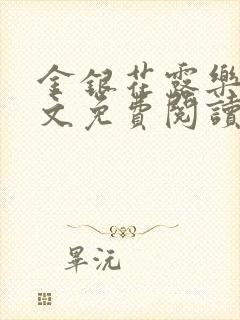 金銀花露樂
文免費閱讀
畢沅